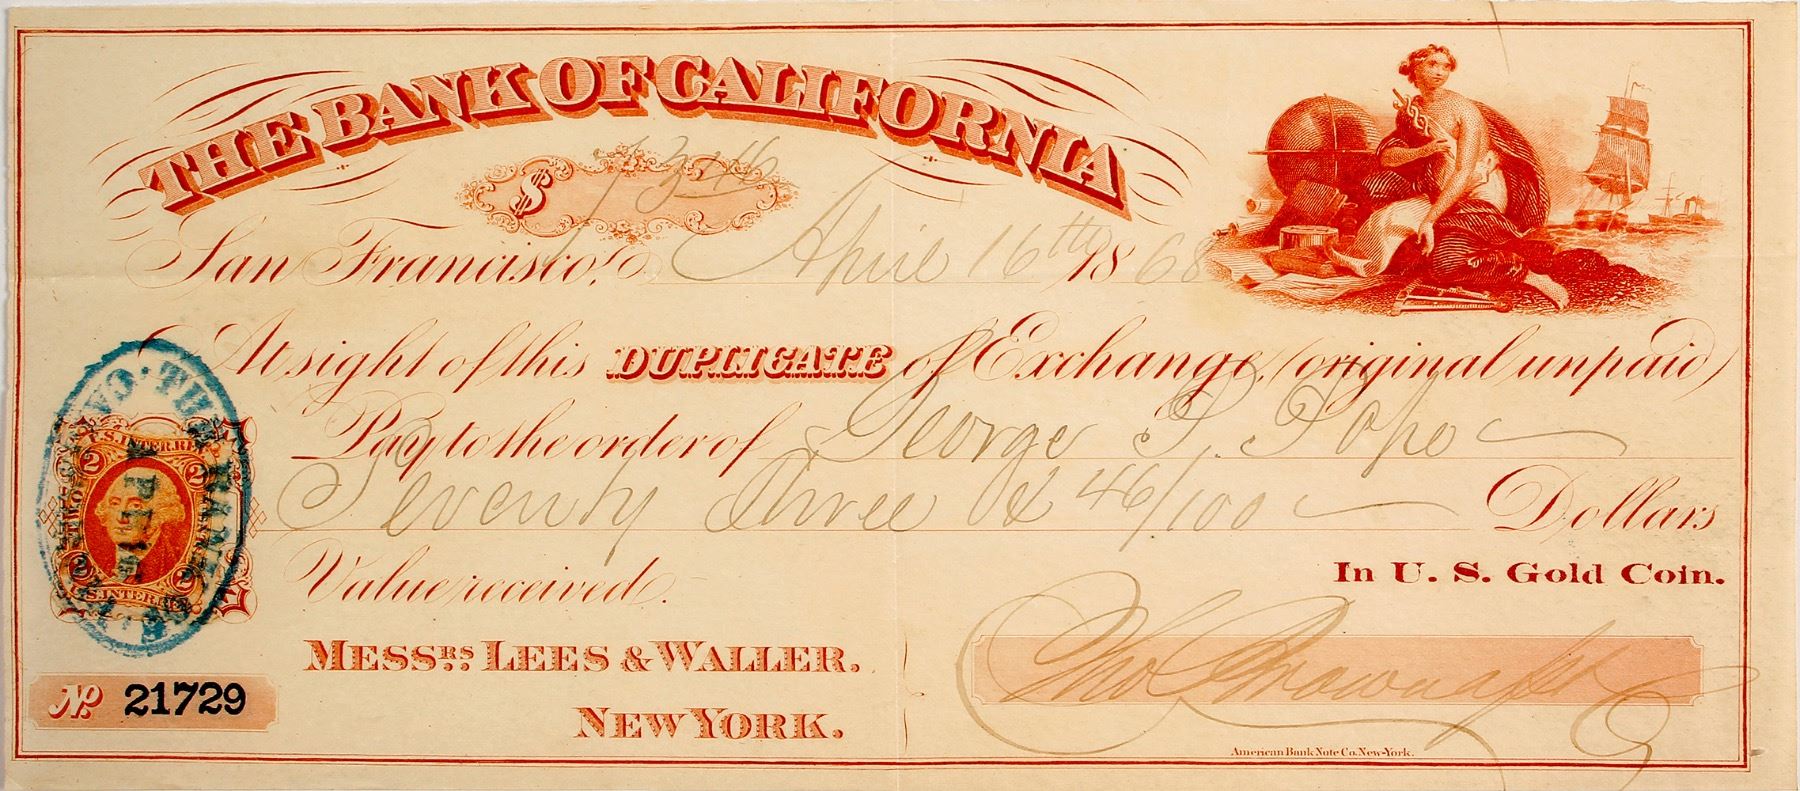 THE BANK OF CALIFORNIA
$ 73 46
San Francisco, April 16th 1868
At sight of this DUPLICATE of Exchange, (original unpaid)
Pay to the order of George T. Pope
Seventy Three & 46/100 Dollars
In U. S. Gold Coin.
Value received.
MESSRS. LEES & WALLER.
NEW YORK.
Tho. Brown
No. 21729
American Bank Note Co. New-York.
U.S. INTER. REV.
2 2
TWO
2 2
U.S. INTER. REV.
THE BANK
APR 16